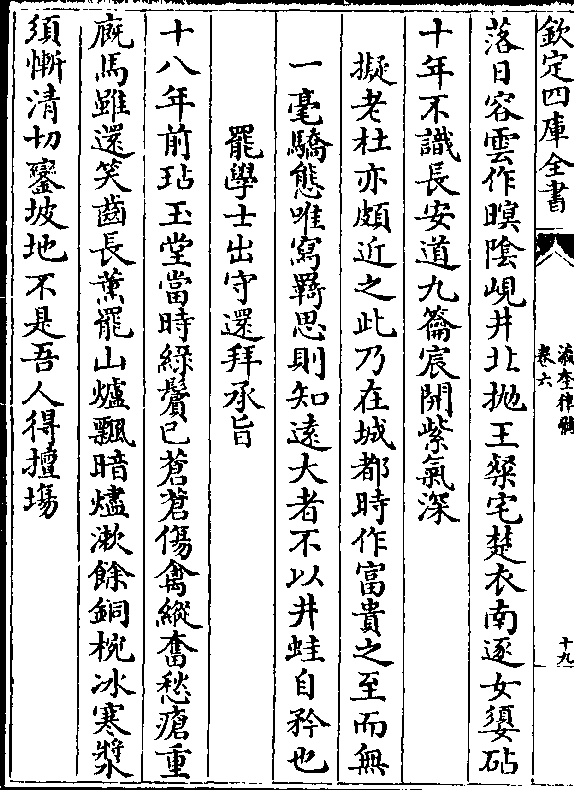 欽定四庫全書
瀛奎律髓
卷六
十九
落日容雲作暝陰峴井北抛王粲宅楚衣南逐女嬃砧
十年不識長安道九籥宸開紫氣深
擬老杜亦頗近之此乃在城都時作富貴之至而無
一毫驕態唯寫羇思則知逺大者不以井蛙自矜也
罷學士出守還拜承旨
十八年前玷玉堂當時綠鬢已蒼蒼傷禽縱奮愁瘡重
廐馬雖還笑齒長薫罷山爐飄暗燼漱餘銅椀冰寒漿
須慚清切鑾坡地不是吾人得擅塲